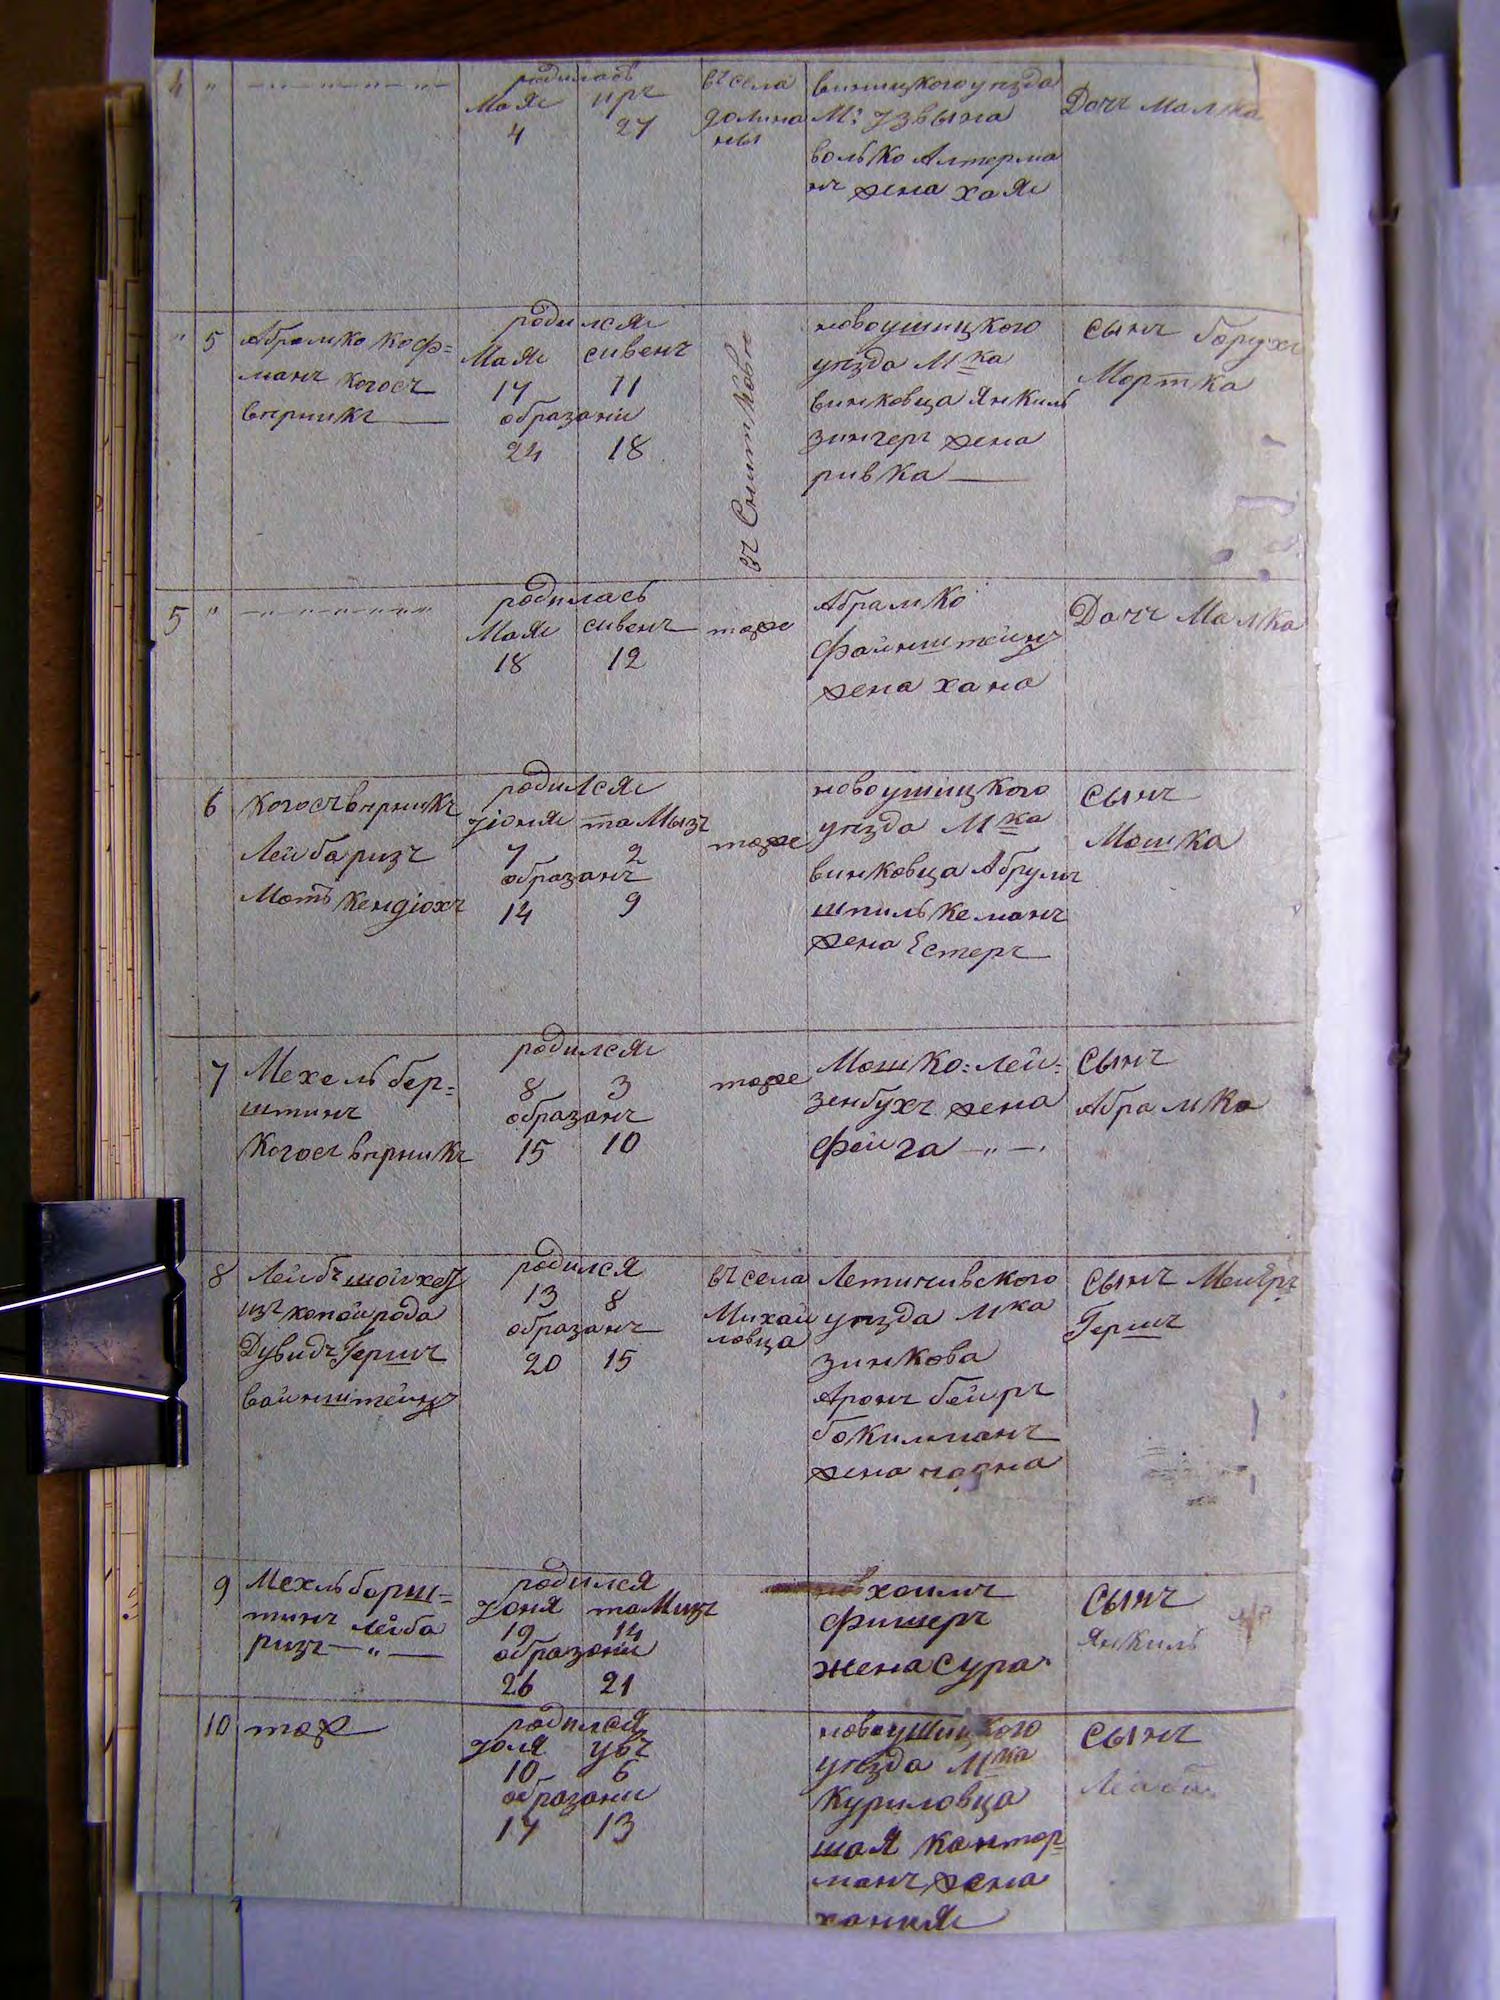 4 " — " — " — " —
родилась
Мая иръ
4 27
въ села
долиня
ны
винницкого уезда
М: Узвына
волько Алтерма
нъ жена хая
Дочъ Малка
" 5
Абрамко Коф=
манъ когосъ
верникъ
родился
Мая сивенъ
17 11
образани
24 18
въ Снитковъ
новоушицкого
уезда Мка
винковца Янкиль
зингеръ жена
ривка
Сынъ борухъ
Мортка
5 " — " — " — " —
родилась
Мая сивенъ
18 12
тоже
Абрамко
файнштейнъ
жена хана
Дочъ Малка
6
Когосъ верникъ
Лейба ризъ
Моть Кендюхъ
родился
Июня таМызъ
7 2
образанъ
14 9
тоже
новоушицкого
уезда Мка
винковца Абрумъ
шпилькеманъ
жена Естеръ
Сынъ
Мошка
7
Мехель бер=
штинъ
Когосъ верникъ
родился
8 3
образанъ
15 10
тоже
Мошко: Лей:
зенбухъ жена
фейга — " —
Сынъ
Абрамко
8
Лейбъ шойхетъ
изъ копойрода
Дувидъ Гершъ
вайнштейнъ
родился
13 8
образанъ
20 15
въ села
Михай
ловца
Летичивского
уезда Мка
зинкова
Аронъ бейръ
бокилманъ
жена
Сынъ Мейеръ
Гершъ
9
Мехль борш=
тинъ лейба
ризъ — " —
родился
Юня таМизъ
19 14
образани
26 21
хаимъ
фишеръ
жена Сура
Сынъ
Янкиль
10 тож
родился
Юля увъ
10 6
образани
17 13
новоушицкого
уезда Мка
Куриловца
шая Кантор=
манъ жена
хання
Сынъ
Лейба